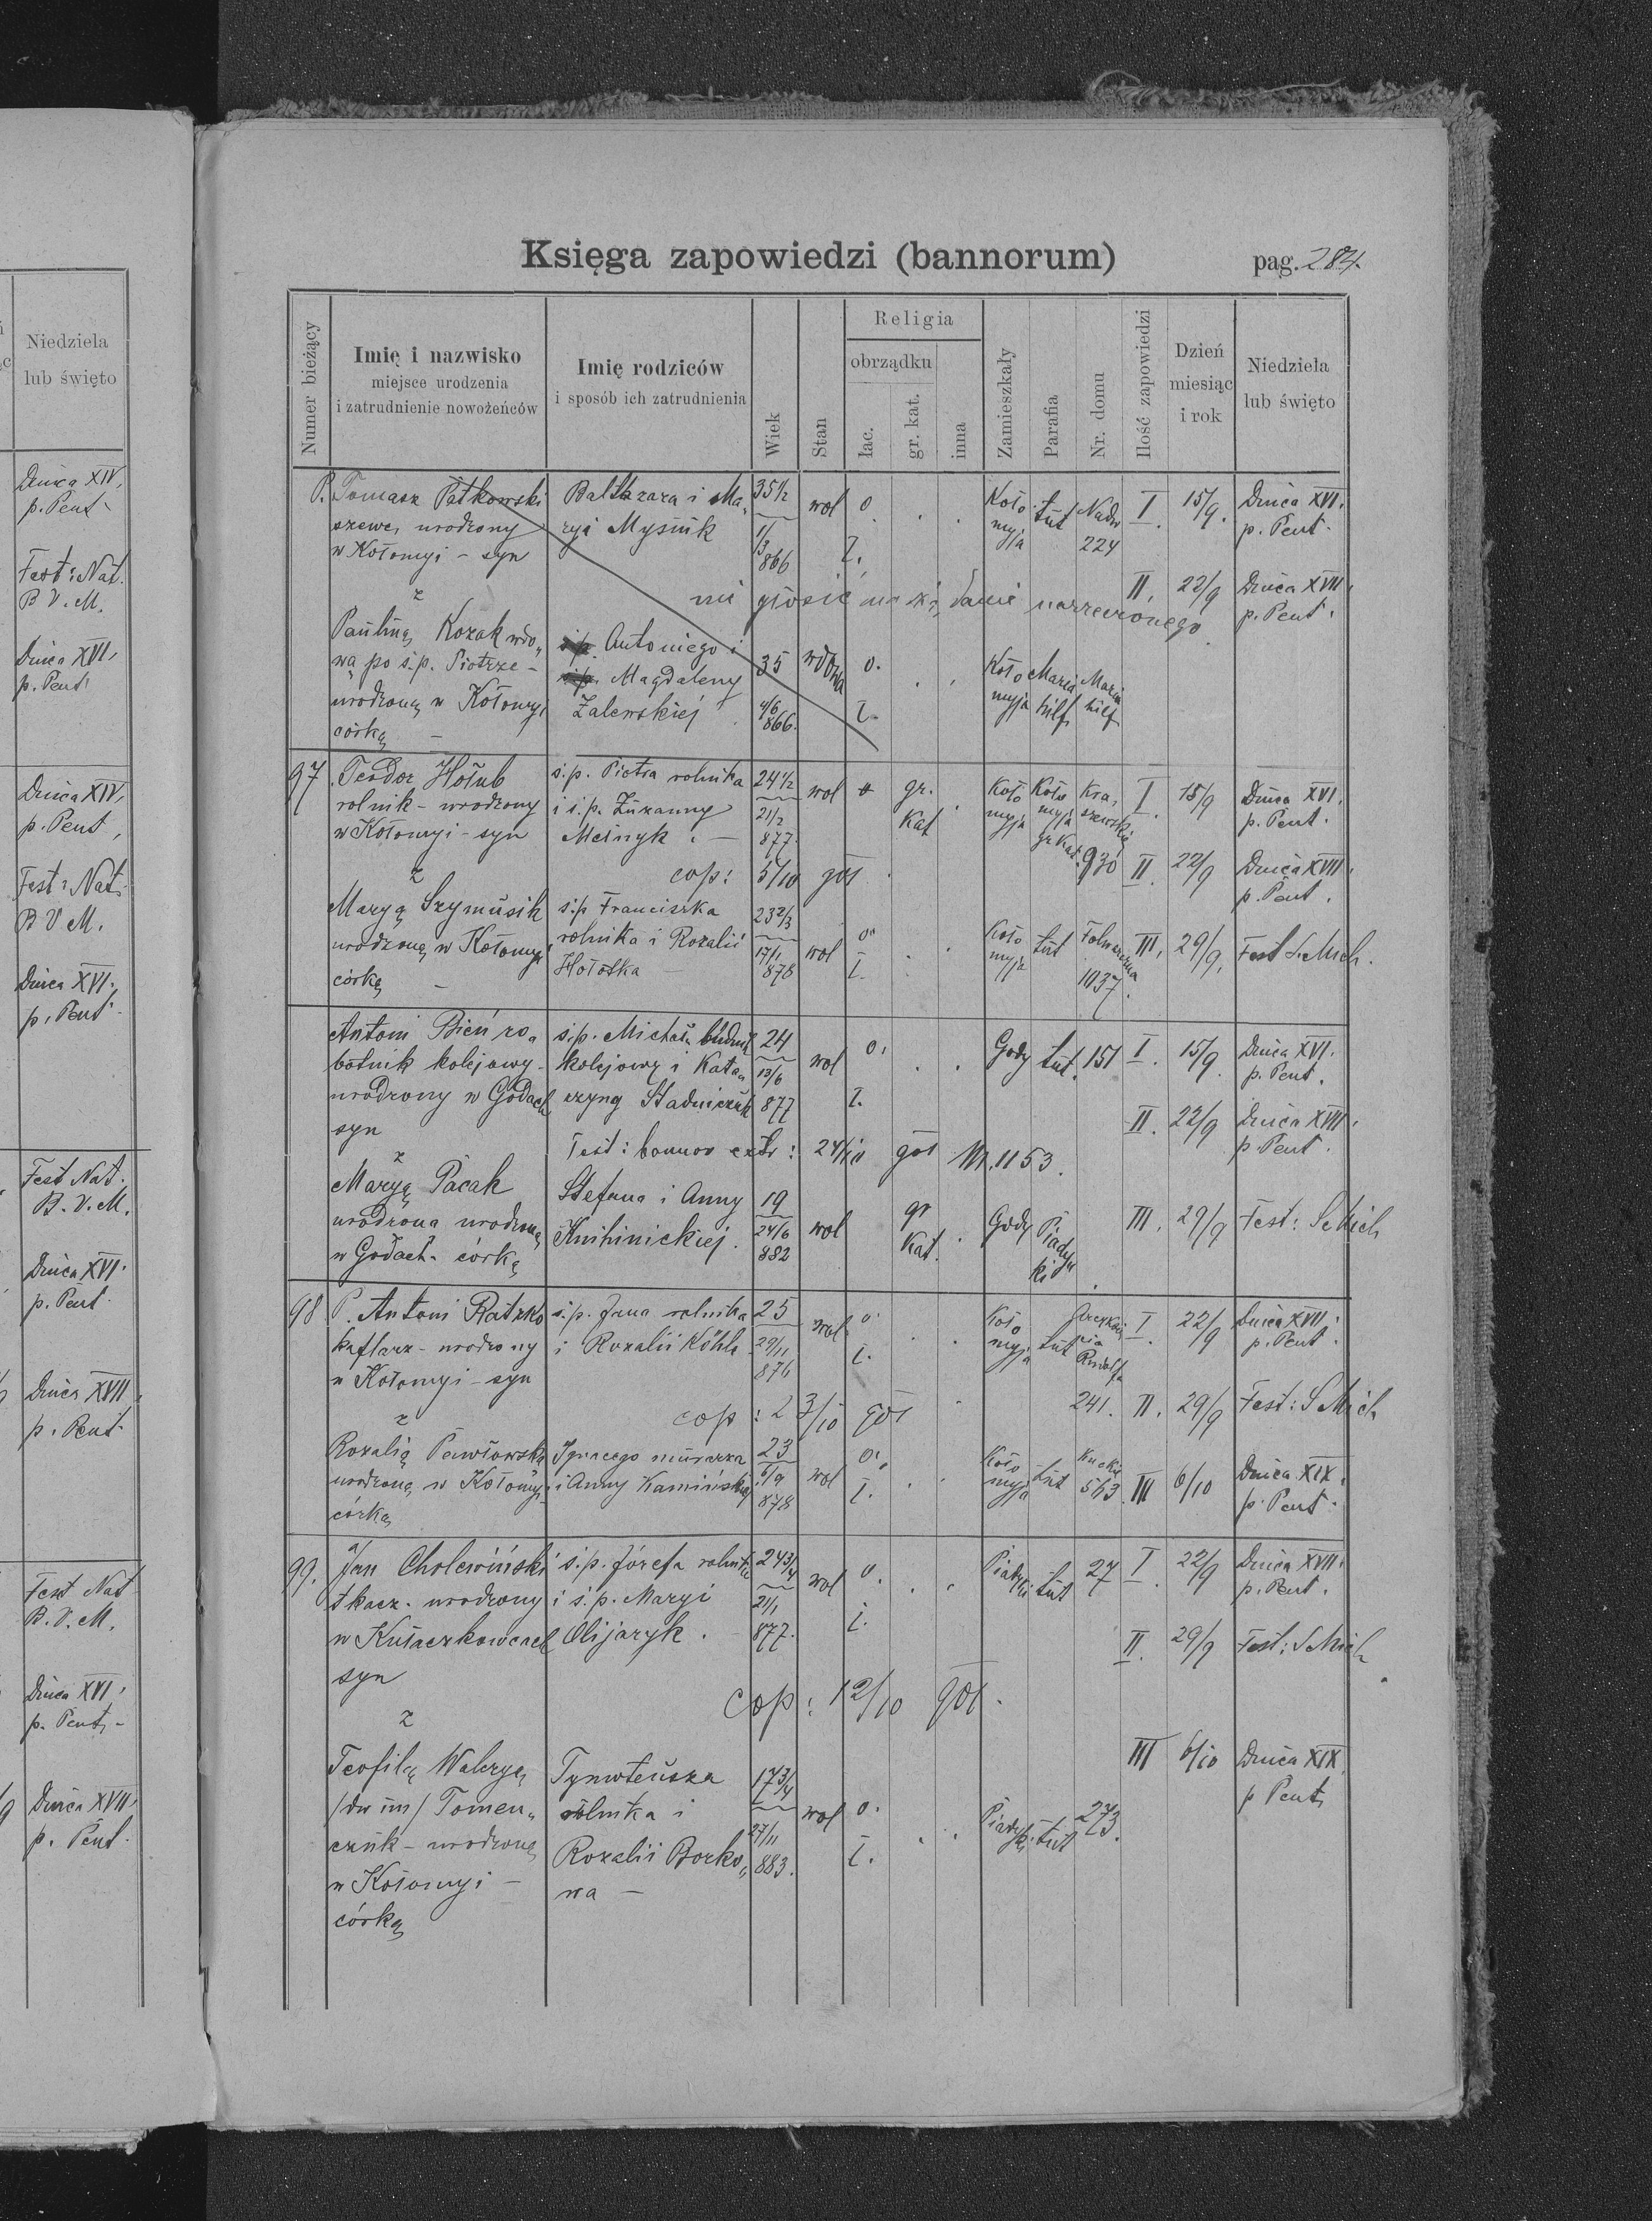 Księga zapowiedzi (bannorum)
pag. 284.
Numer bieżący
Imię i nazwisko
miejsce urodzenia
i zatrudnienie nowożeńców
Imię rodziców
i sposób ich zatrudnienia
Wiek
Stan
Religia
obrządku
łac.
gr. kat.
inna
Zamieszkały
Parafia
Nr. domu
Ilość zapowiedzi
Dzień
miesiąc
i rok
Niedziela
lub święto
P. Tomasz Patkowski Baltazara i Ma„ 35½ wol o. Koło tut Nadw I. 15/9. Dnica XVI.
szewc, urodzony ryi Mysiuk 1/3 myja 224 p. Pent.
w Kołomyi – syn 866 ł.
z II. 22/9 Dnica XVII.
p. Pent.
Pauliną Kozak wdo„ Antoniego i 35 wdowa o. Koło Maria Maria
wą po ś.p. Piotrze – Magdaleny myja hilf hilf
urodzoną w Kołomyi Zalewskiej 4/6 866. ł.
córką –
97. Teodor Hołub ś.p. Piotra rolnika 24½ wol gr. Koło Koło Kra„ I. 15/9 Dnica XVI.
rolnik – urodzony i ś.p. Zuzanny 21/2 Kat myja myja szewskie p. Pent.
w Kołomyi – syn Melnyk. – 877. gr Kat. 930 II. 22/9 Dnica XVII.
z cop: 5/10 901 p. Pent.
Maryą Szymusik ś.p. Franciszka 23 2/3 o. Koło tut III. 29/9. Fest S. Mich.
urodzoną w Kołomyi rolnika i Rozalii 17/1 wol ł. myja 1037.
córką – Hołotka – 878
Antoni Bień ro„ ś.p. Michała 24 wol o. Gody tut. 151 I. 15/9. Dnica XVI.
botnik kolejowy – i Kata„ 13/6 p. Pent.
urodzony w Godach rzyny Stadniczuk 877 ł.
syn II. 22/9 Dnica XVII.
z Test: bannor extr: 24/10 901 Nr. 1153. p. Pent.
Maryą Pacak Stefana i Anny 19 gr Gody Piadyki III. 29/9 Fest: S Mich
urodzona urodzoną Knihinickiej. 24/6 wol Kat.
w Godach – córką 882
98 P. Antoni Ratzko ś.p. Jana rolnika 25 wol o. Koło tut I. 22/9 Dnica XVII.
kaflarz – urodzony i Rozalii Köhle 29/11 ł. myja Rudolfa p. Pent.
w Kołomyi – syn 876
z cop: 23/10 901 241. II. 29/9 Fest: S Mich
Rozalią Pawłowską Ignacego murarza 23 o. Koło tut 563 III 6/10 Dnica XIX.
urodzoną w Kołomyi i Anny Kamińskiej 6/9 wol ł. myja p. Pent.
córką 878
99. Jan Cholewiński ś.p. Józefa rolnika 24¾ wol o. Piadyki tut 27 I. 22/9 Dnica XVII.
tkacz – urodzony i ś.p. Maryi 21/1 p. Pent.
w Kułaczkowcach Olijaryk. 877. ł. II. 29/9 Fest: S Mich
syn
z cop: 12/10 901.
III 6/10 Dnica XIX.
Teofilą Waleryą Tymoteusza 17¾ p. Pent.
/dw im/ Tomen„ rolnika i wol o. Piadyki tut 273.
czuk – urodzoną Rozalii Borko„ 27/11 ł.
w Kołomyi – wa – 883.
córką
Niedziela
lub święto
Dnica XIV,
p. Pent.
Fest: Nat.
B V. M.
Dnica XVI,
p. Pent.
Dnica XIV,
p. Pent,
Fest: Nat.
B V M.
Dnica XVI.,
p. Pent.
Fest Nat.
B. V. M.
Dnica XVI.
p. Pent.
Dnica XVII.
p. Pent.
Fest Nat
B. V. M.
Dnica XVI,
p. Pent. –
Dnica XVII.
p. Pent.